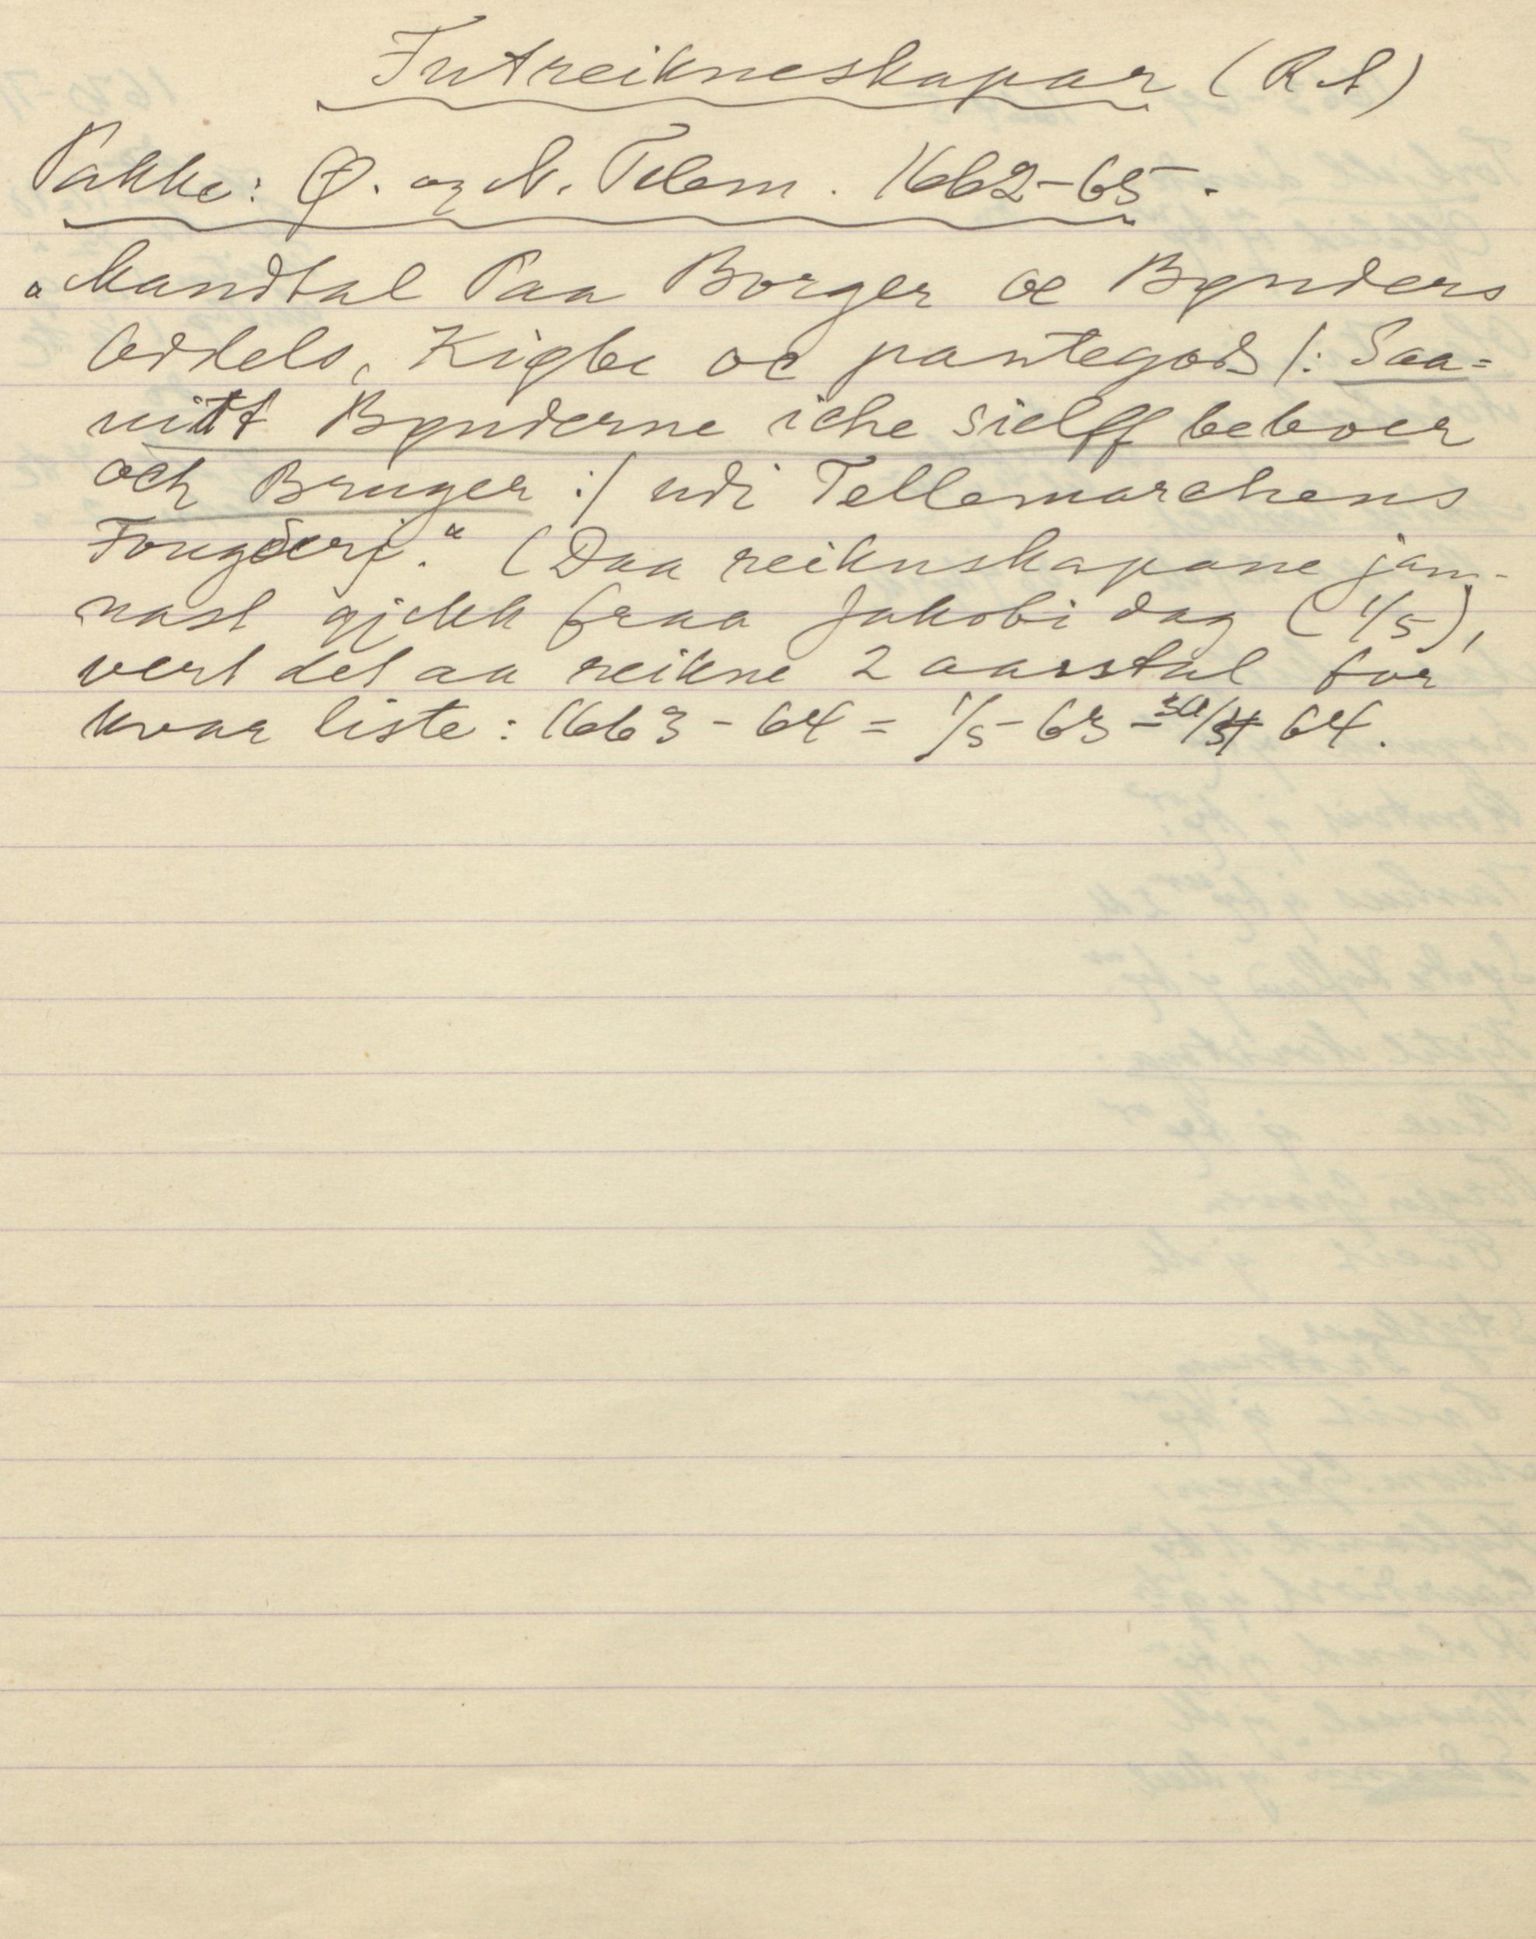 Futreikneskapar (RA)
Pakke: Ø. og N. Telem. 1662-65.
"Mandtal Paa Borger oc Bønders
Oddels, Kiøbe oc pantegods /: Saa=
vitt Bønderne iche sielff beboer
och Bruger :/ udi Tellemarchens
Fougderj." (Daa reiknskapane jam-
nast gjekk fraa Jakobi dag (1/5),
vert det aa reikne 2 aarstal for
kvar liste: 1663-64 = 1/5-63-30/4 64.